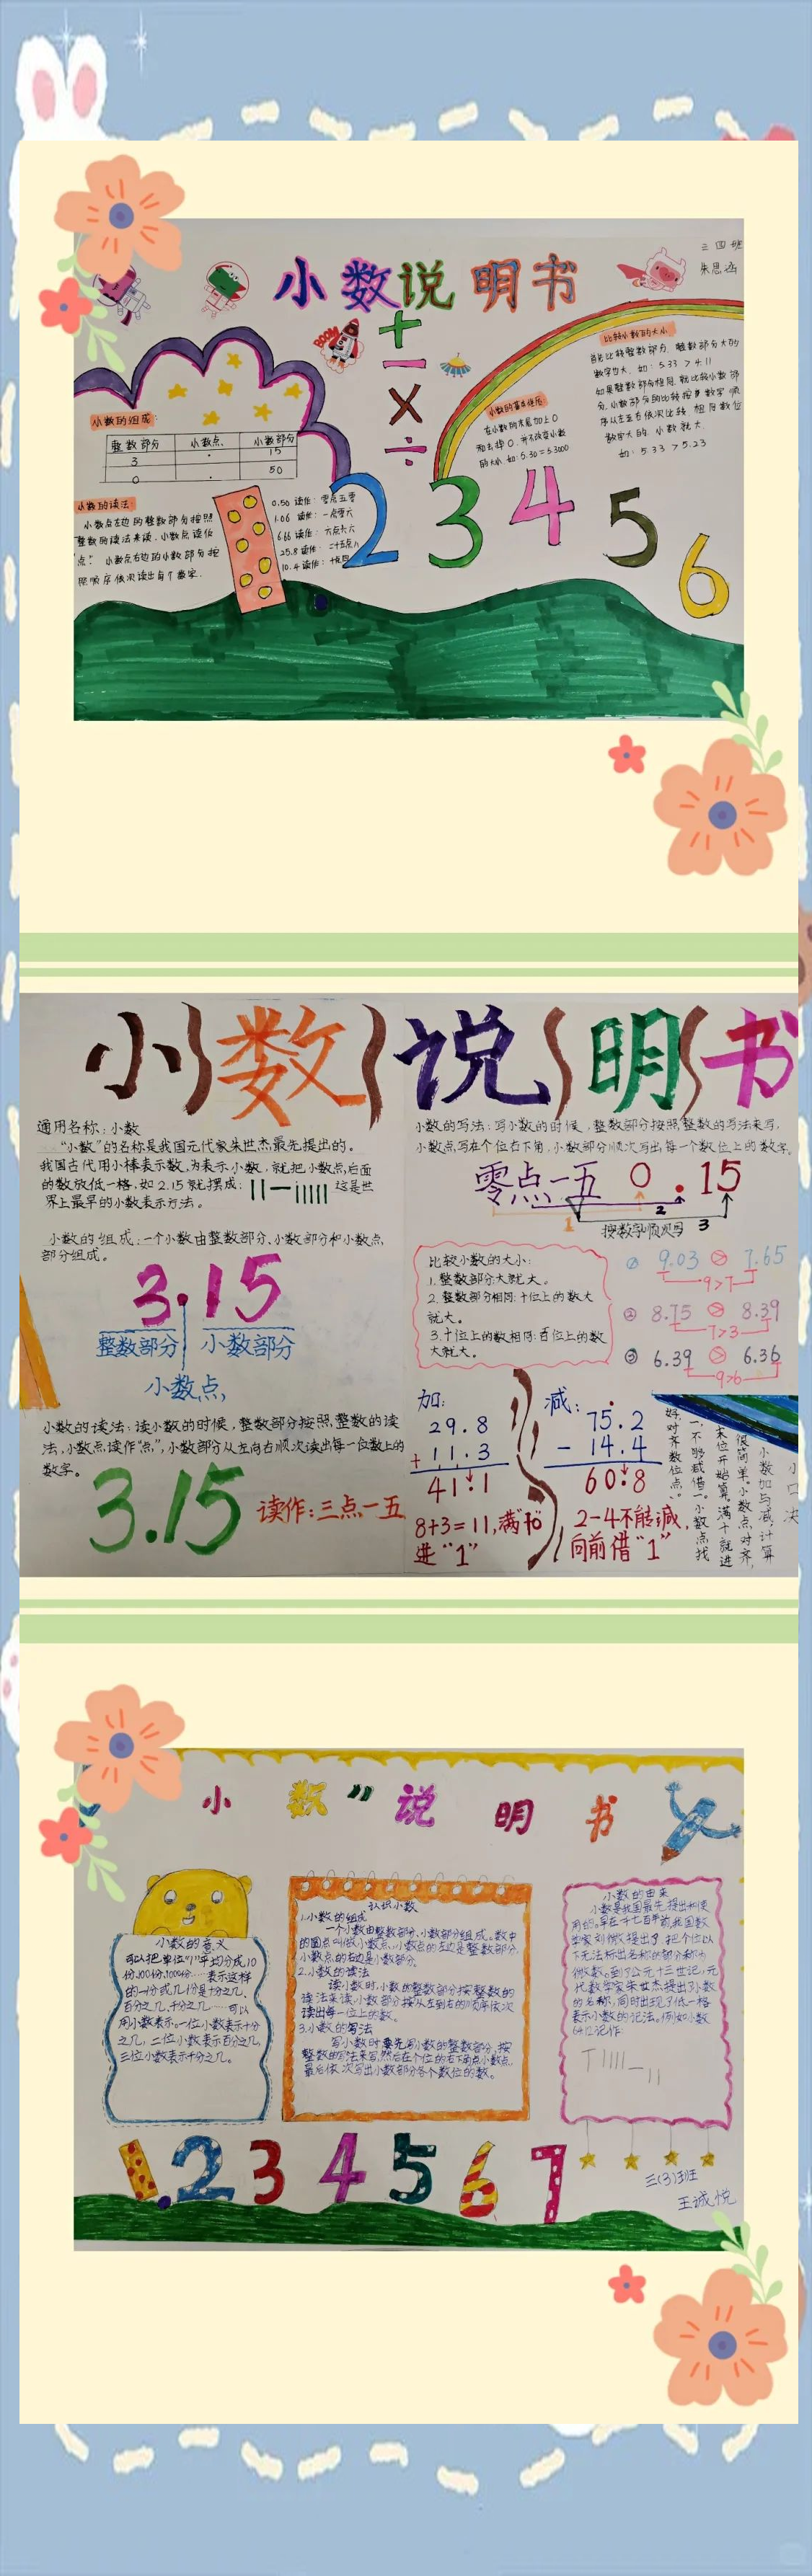 三四班
朱思涵
小数说明书
BOOM
+
−
×
÷
小数的组成:
整数部分 小数点 小数部分
3 . 15
0 . 50
小数的读法:
小数点左边的整数部分按照
整数的读法来读,小数点读作
"点"小数点右边的小数部分按
照顺序依次读出每个数字.
0.50 读作:零点五零
1.06 读作:一点零六
6.66 读作:六点六六
25.8 读作:二十五点八
10.4 读作:十点四
小数的基本性质
在小数的末尾加上0
和去掉0,并不改变小数
的大小 如:5.30=5.3000
比较小数的大小
首先比较整数部分,整数部分大的
数字也大,如:5.33>4.11
如果整数部分相同,就比较小数部
分,小数部分的比较按照数字顺
序从左至右依次比较,相同数位
数字大的,小数就大.
如:5.33>5.23
1 2 3 4 5 6
小数说明书
通用名称:小数
"小数"的名称是我国元代家朱世杰最先提出的。
我国古代用小棒表示数,为表示小数,就把小数点后面
的数放低一格,如2.15就摆成: 这是世
界上最早的小数表示方法。
小数的组成:一个小数由整数部分、小数部分和小数点
部分组成。
3.15
整数部分 小数部分
小数点
小数的读法:读小数的时候,整数部分按照整数的读
法,小数点读作"点",小数部分从左向右顺次读出每一位数上的
数字。
3.15 读作:三点一五
小数的写法:写小数的时候,整数部分按照整数的写法来写,
小数点写在个位右下角,小数部分顺次写出每一个数位上的数字。
零点一五 0.15
1 2 3
按数字顺次写
比较小数的大小:
1.整数部分大就大。
2.整数部分相同:十位上的数大
就大。
3.十位上的数相同:百位上的数
大就大。
① 9.03 > 7.65
9>7
② 8.75 > 8.39
7>3
③ 6.39 > 6.36
9>6
加:
29.8
+ 11.3
41.1
8+3=11,满"十"
进"1"
减:
75.2
- 14.4
60.8
2-4不能减,
向前借"1"
小口决
小数加与减,计算
很简单。小数点对齐,
末位开始算。满十就进
一,不够减借一。小数点找
好,对齐数位点。
小数说明书
小数的意义
可以把单位"1"平均分成10
份、100份、1000份……表示这样
的一份或几份是十分之几、
百分之几、千分之几……可以
用小数表示。一位小数表示十分
之几,二位小数表示百分之几,
三位小数表示千分之几。
认识小数
1.小数的组成
一个小数由整数部分、小数部分组成。数中
的圆点叫做小数点,小数点的左边是整数部分,
小数点的右边是小数部分。
2.小数的读法
读小数时,小数的整数部分按整数的
读法来读,小数部分按从左到右的顺序依次
读出每一位上的数。
3.小数的写法
写小数时要先写小数的整数部分,按
整数的写法来写,然后在个位的右下角点小数点,
最后依次写出小数部分各个数位的数。
小数的由来
小数是我国最先提出和使
用的。早在一千七百年前,我国数
学家刘徽提出了,把个位以
下无法标出名称的部分称为
微数。到了公元十三世纪,元
代数学家朱世杰提出了小数
的名称,同时出现了低一格
表示小数的记法。例如小数
64.12记作:
1 2 3 4 5 6 7
三(3)班
王诚悦